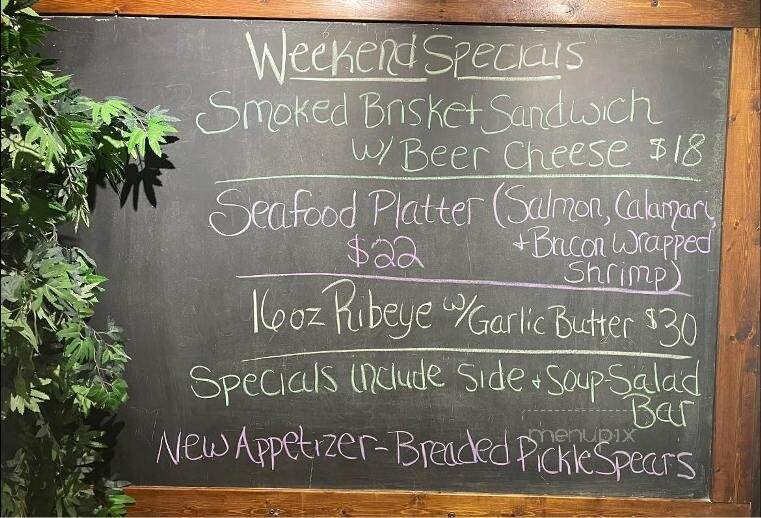 Weekend Specials
Smoked Brisket Sandwich
w/ Beer Cheese $18
Seafood Platter (Salmon, Calamari,
$22 + Bacon Wrapped
Shrimp)
16oz Ribeye w/ Garlic Butter $30
Specials include Side + Soup-Salad
Bar
menupix
New Appetizer - Breaded Pickle Spears